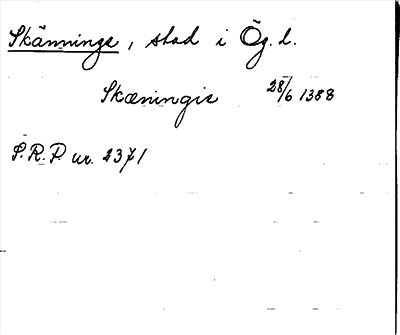 Skänninge, stad i Ög. l.
Skæningis 28/6 1388
S.R.P. nr. 2371